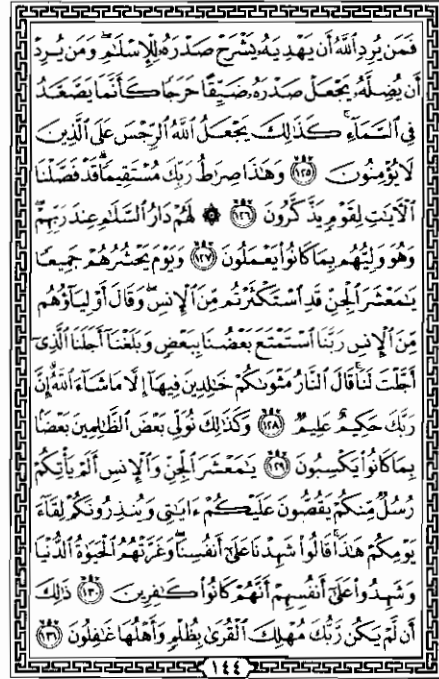 فَمَن يُرِدِ ٱللَّهُ أَن يَهْدِيَهُۥ يَشْرَحْ صَدْرَهُۥ لِلْإِسْلَٰمِ ۖ وَمَن يُرِدْ
أَن يُضِلَّهُۥ يَجْعَلْ صَدْرَهُۥ ضَيِّقًا حَرَجًا كَأَنَّمَا يَصَّعَّدُ
فِى ٱلسَّمَآءِ ۚ كَذَٰلِكَ يَجْعَلُ ٱللَّهُ ٱلرِّجْسَ عَلَى ٱلَّذِينَ
لَا يُؤْمِنُونَ ١٢٥ وَهَٰذَا صِرَٰطُ رَبِّكَ مُسْتَقِيمًا ۗ قَدْ فَصَّلْنَا
ٱلْءَايَٰتِ لِقَوْمٍ يَذَّكَّرُونَ ١٢٦ ۞ لَهُمْ دَارُ ٱلسَّلَٰمِ عِندَ رَبِّهِمْ ۖ
وَهُوَ وَلِيُّهُم بِمَا كَانُوا۟ يَعْمَلُونَ ١٢٧ وَيَوْمَ يَحْشُرُهُمْ جَمِيعًا
يَٰمَعْشَرَ ٱلْجِنِّ قَدِ ٱسْتَكْثَرْتُم مِّنَ ٱلْإِنسِ ۖ وَقَالَ أَوْلِيَآؤُهُم
مِّنَ ٱلْإِنسِ رَبَّنَا ٱسْتَمْتَعَ بَعْضُنَا بِبَعْضٍ وَبَلَغْنَآ أَجَلَنَا ٱلَّذِىٓ
أَجَّلْتَ لَنَا ۚ قَالَ ٱلنَّارُ مَثْوَىٰكُمْ خَٰلِدِينَ فِيهَآ إِلَّا مَا شَآءَ ٱللَّهُ ۗ إِنَّ
رَبَّكَ حَكِيمٌ عَلِيمٌ ١٢٨ وَكَذَٰلِكَ نُوَلِّى بَعْضَ ٱلظَّٰلِمِينَ بَعْضًۢا
بِمَا كَانُوا۟ يَكْسِبُونَ ١٢٩ يَٰمَعْشَرَ ٱلْجِنِّ وَٱلْإِنسِ أَلَمْ يَأْتِكُمْ
رُسُلٌ مِّنكُمْ يَقُصُّونَ عَلَيْكُمْ ءَايَٰتِى وَيُنذِرُونَكُمْ لِقَآءَ
يَوْمِكُمْ هَٰذَا ۚ قَالُوا۟ شَهِدْنَا عَلَىٰٓ أَنفُسِنَا ۖ وَغَرَّتْهُمُ ٱلْحَيَوٰةُ ٱلدُّنْيَا
وَشَهِدُوا۟ عَلَىٰٓ أَنفُسِهِمْ أَنَّهُمْ كَانُوا۟ كَٰفِرِينَ ١٣٠ ذَٰلِكَ
أَن لَّمْ يَكُن رَّبُّكَ مُهْلِكَ ٱلْقُرَىٰ بِظُلْمٍ وَأَهْلُهَا غَٰفِلُونَ ١٣١
١٤٤